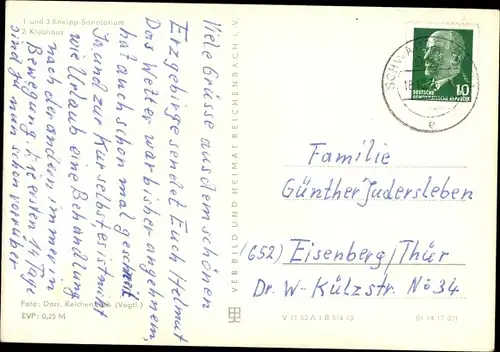 1 und 3 Kneipp-Sanatorium
2 Klubhaus
Viele Grüsse aus dem schönen
Erzgebirge sendet Euch Helmut
Das Wetter war bisher angenehm,
hat auch schon mal geschneit
Ja, und zur Kur selbst, es ist nicht
wie Urlaub eine Behandlung
nach der andern immer in
Bewegung. Die ersten 14 Tage
sind ja nun schon vorüber
Foto: Darr, Reichenbach (Vogtl.)
EVP: 0,25 M
VERBILD UND HEIMAT REICHENBACH i. V.
SCHWA
e
10
DEUTSCHE
DEMOKRATISCHE REPUBLIK
Familie
Günther Judersleben
(652) Eisenberg/Thür
Dr. W-Külzstr. No 34
V 11 50 A 1 B 574/73
01 14 17 021